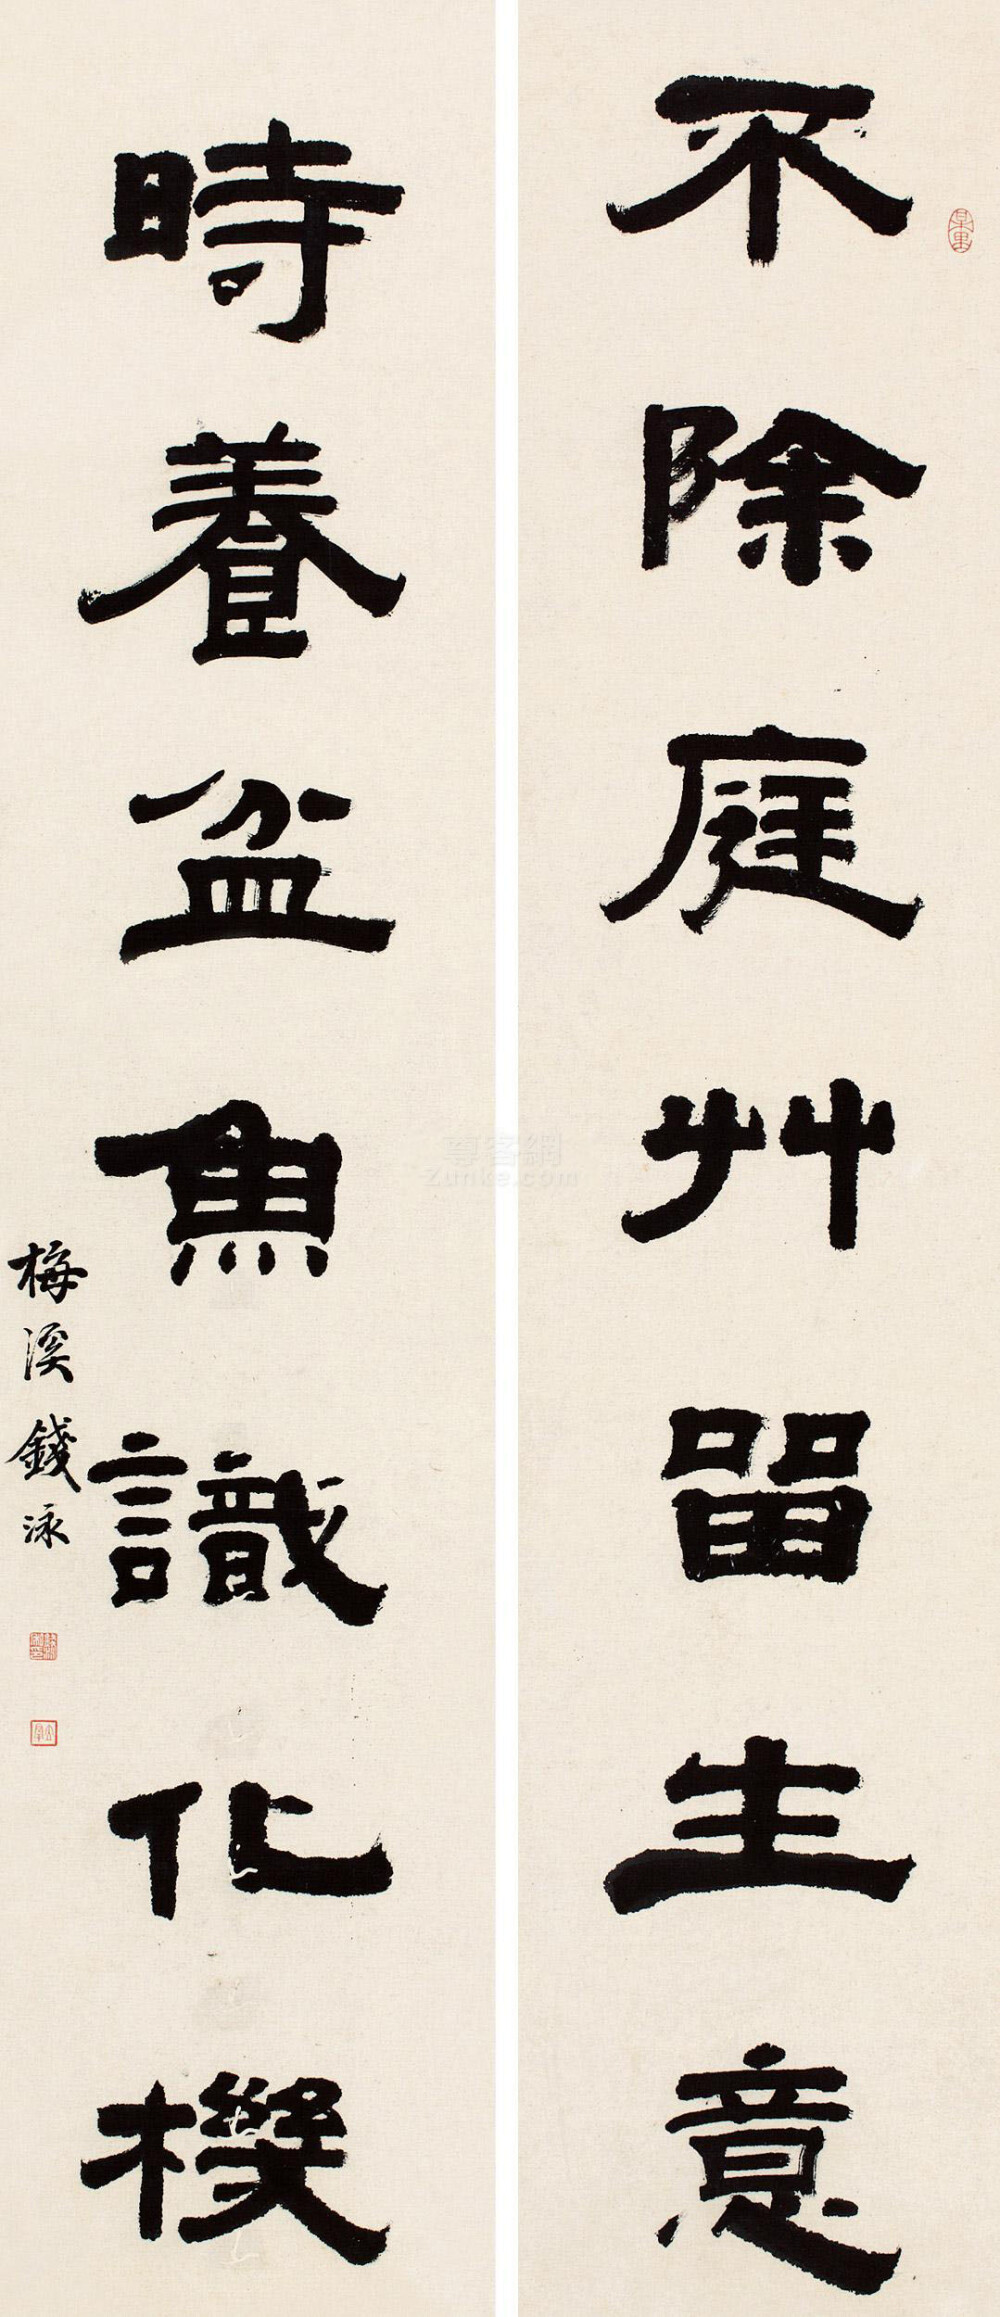 不除庭艸留生意
時養盆魚識化機
梅溪錢泳
尊客網
Zunke.com